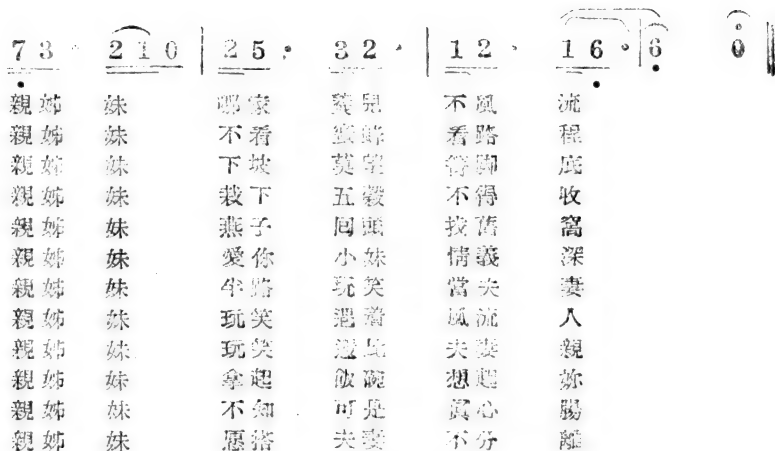 7 3 · 2 1 0 | 2 5 · 3 2 · | 1 2 · 1 6 · | 6 0 ‖
親姊 妹 哪家 兒 不風 流
親姊 妹 不看 看路 程
親姊 妹 下坡 莫望 脚 底
親姊 妹 栽下 五穀 不得 收
親姊 妹 燕子 回頭 找舊 窩
親姊 妹 愛你 小妹 情義 深
親姊 妹 半路 玩笑 當夫 妻
親姊 妹 玩笑 風流 人
親姊 妹 玩笑 夫妻 親
親姊 妹 拿起 飯碗 想起 妳
親姊 妹 不知 可是 眞心 腸
親姊 妹 愿搭 夫妻 不分 離